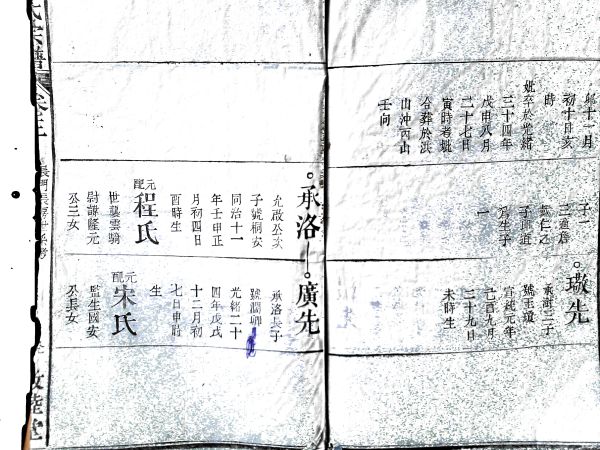 卯十一月
初十日亥
時
妣卒於光緒
三十四年
戊申八月
二十七日
寅時考妣
合葬於浜
山沖丙山
壬向
子一
爲生子
一
。敬先
承澍三子
號玉道
宣統元年
己酉九月
二十九日
未時生
。承洛
允啟公次
子號桐安
同治十一
年壬申正
月初四日
酉時生
元配程氏
世襲雲騎
尉諱隆元
公三女
。廣先
承洛長子
光緒二十
四年戊戌
十二月初
七日申時
生
元配宋氏
監生國安
公長女
氏宗譜
卷之三
敦睦堂